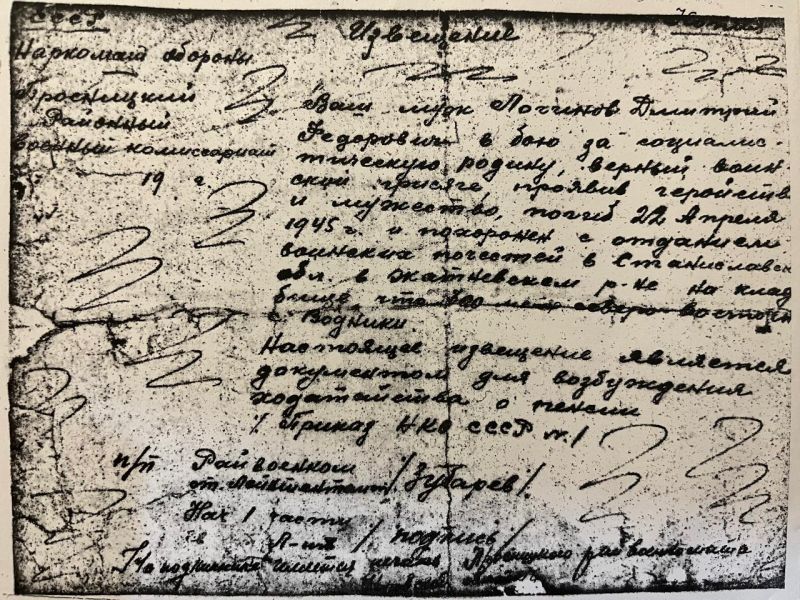 СССР
Извещение
Наркомат обороны
Просницкий
Районный
военный комиссариат
19 г
Ваш муж Логинов Дмитрий
Федорович в бою за социалис-
тическую родину, верный воин
ской присяге, проявив геройств
и мужество, погиб 22 Апреля
1945 г. и похоронен с отданием
воинских почестей в Станиславск
обл. в р-не на клад
бище, что северо восточн
с Водники.
Настоящее извещение является
документом для возбуждения
ходатайства о пенсии
/ Приказ НКО СССР №/
п/п Райвоенком
ст. лейтенант / Зубарев /.
Нач 1 части
/ подпись /
На подлинной имеется печать райвоенкомата